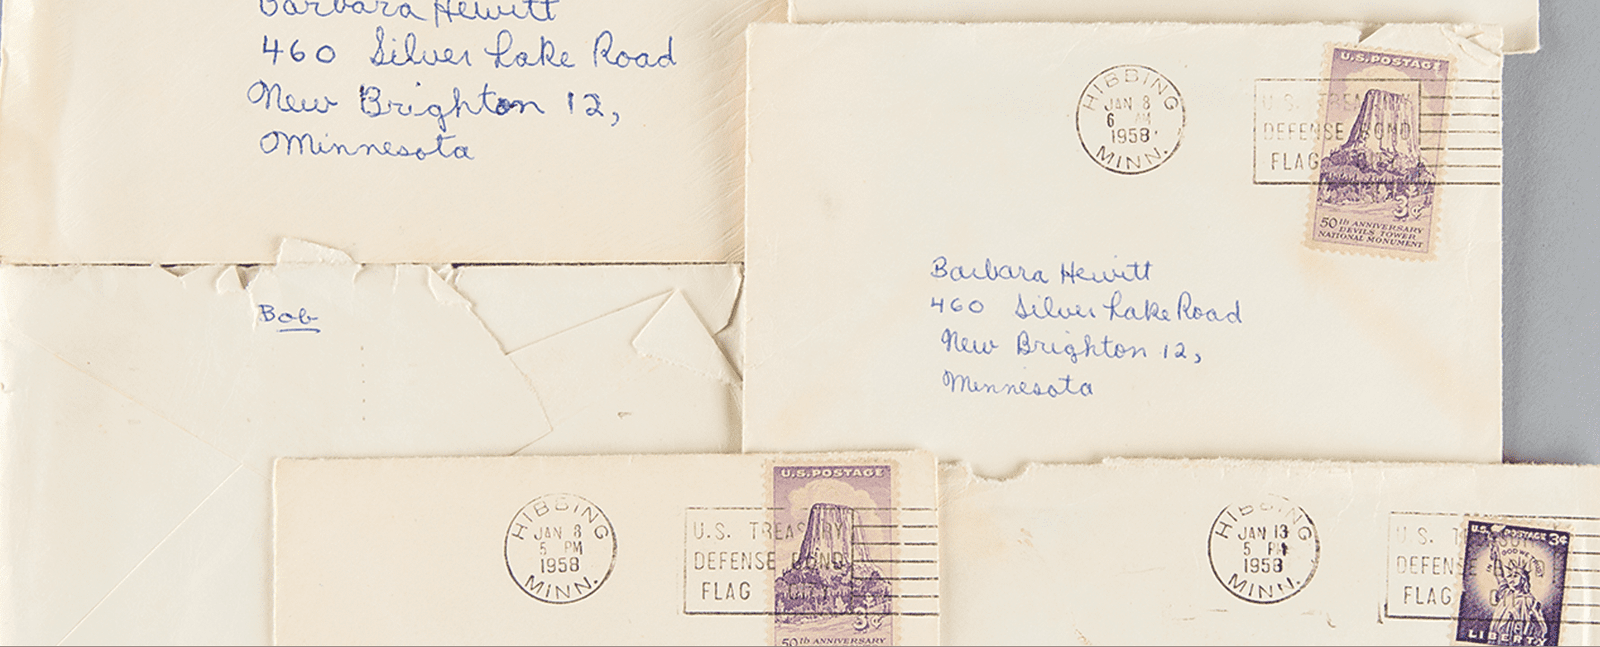 Barbara Hewitt
460 Silver Lake Road
New Brighton 12,
Minnesota
Bob
HIBBING
JAN 8
6 AM
1958
MINN.
U.S. TREASURY
DEFENSE BOND
FLAG
U.S. POSTAGE
3¢
50th ANNIVERSARY
DEVILS TOWER
NATIONAL MONUMENT
Barbara Hewitt
460 Silver Lake Road
New Brighton 12,
Minnesota
HIBBING
JAN 8
5 PM
1958
MINN.
U.S. TREASURY
DEFENSE BOND
FLAG
U.S. POSTAGE
3¢
50th ANNIVERSARY
HIBBING
JAN 13
5 PM
1958
MINN.
U.S.
DEFENSE
FLAG
U.S. POSTAGE 3¢
LIBERTY